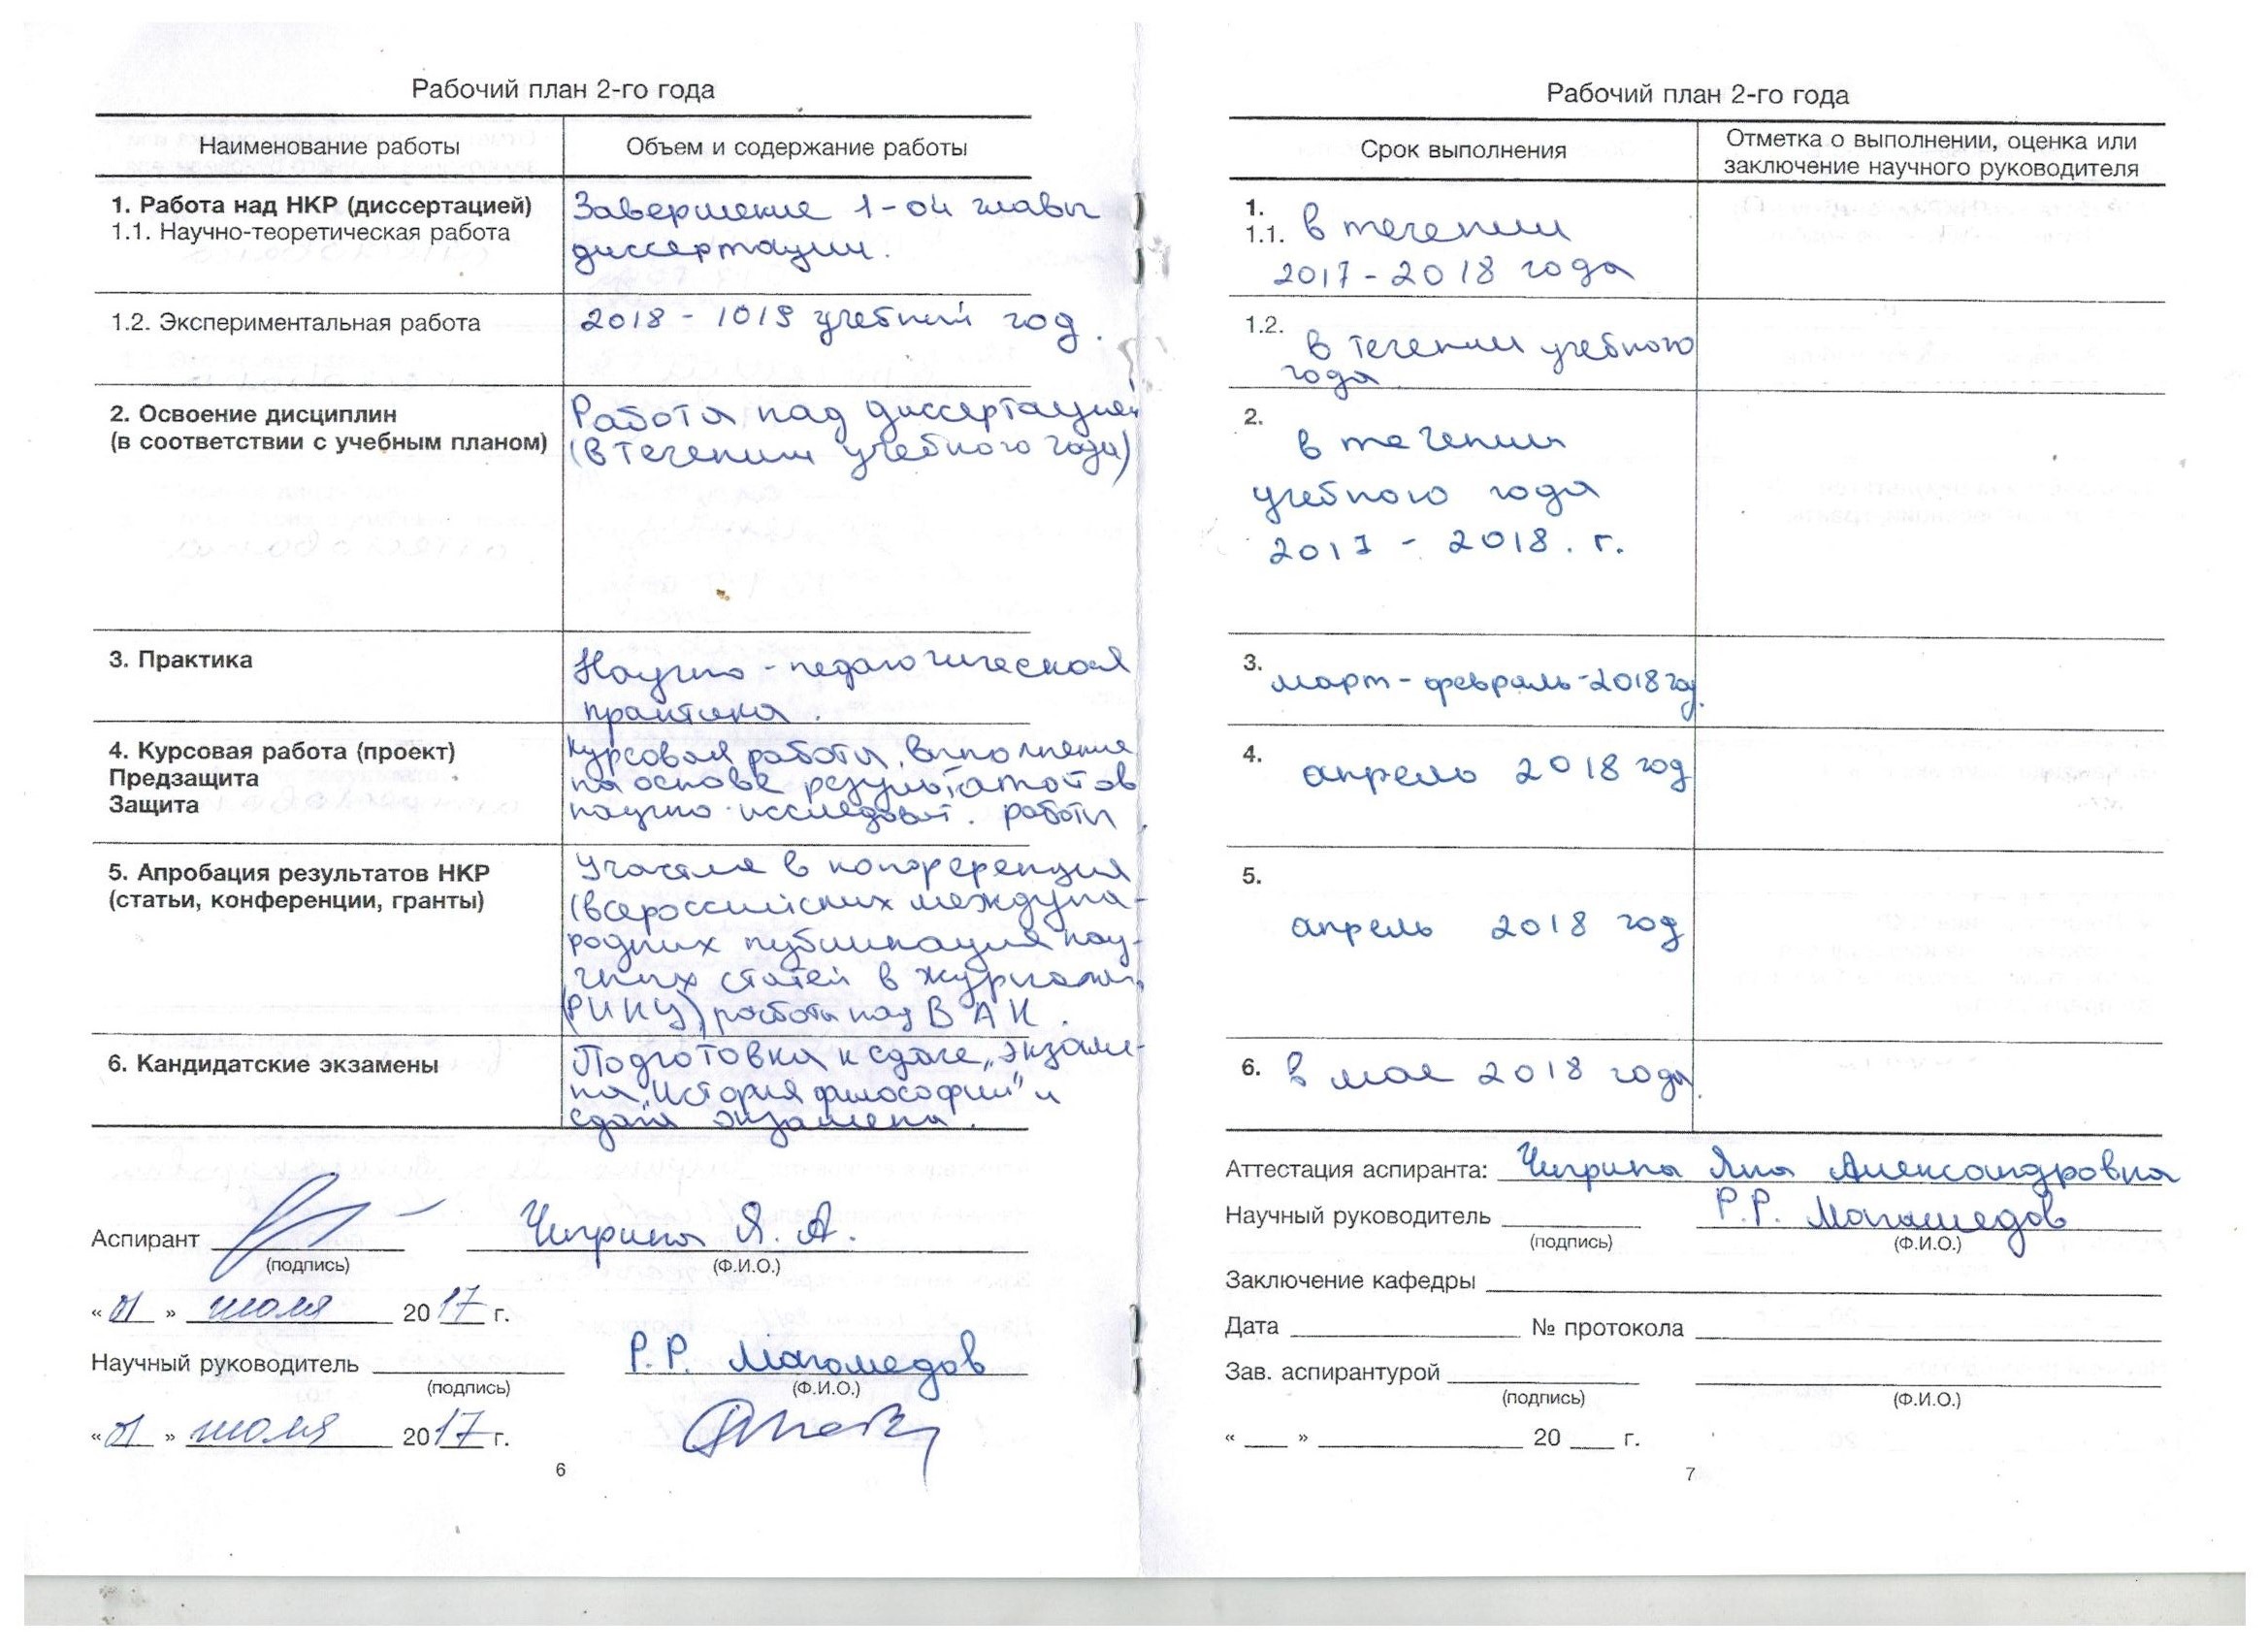 Рабочий план 2-го года
Наименование работы
Объем и содержание работы
1. Работа над НКР (диссертацией)
1.1. Научно-теоретическая работа
Завершение 1-ой главы
диссертации.
1.2. Экспериментальная работа
2018 - 1019 учебный год.
2. Освоение дисциплин
(в соответствии с учебным планом)
Работа над диссертацией
(в течении учебного года)
3. Практика
Научно-педагогическая
практика.
4. Курсовая работа (проект)
Предзащита
Защита
Курсовая работа, выполнение
на основе результатов
научно-исследоват. работы.
5. Апробация результатов НКР
(статьи, конференции, гранты)
Участие в конференция
(всероссийских междуна-
родних публикация нау-
чних статей в журнали
(РИНЦ), работы над ВАК.
6. Кандидатские экзамены
Подготовка к сдаче „экзаме-
на „История философии" и
сдача экзамена.
Аспирант
Чиприна Я. А.
(подпись)
(Ф.И.О.)
« 01 » июля 2017 г.
Научный руководитель
Р.Р. Магомедов
(подпись)
(Ф.И.О.)
« 01 » июля 2017 г.
6
Рабочий план 2-го года
Срок выполнения
Отметка о выполнении, оценка или
заключение научного руководителя
1.
1.1. в течении
2017 - 2018 года
1.2. в течении учебного
года
2.
в течении
учебного года
2017 - 2018. г.
3.
март - февраль - 2018 год.
4.
апрель 2018 год
5.
апрель 2018 год
6. в мае 2018 года.
Аттестация аспиранта: Чиприна Яна Александровна
Научный руководитель
Р.Р. Магомедов
(подпись)
(Ф.И.О.)
Заключение кафедры
Дата № протокола
Зав. аспирантурой
(подпись)
(Ф.И.О.)
« » 20 г.
7